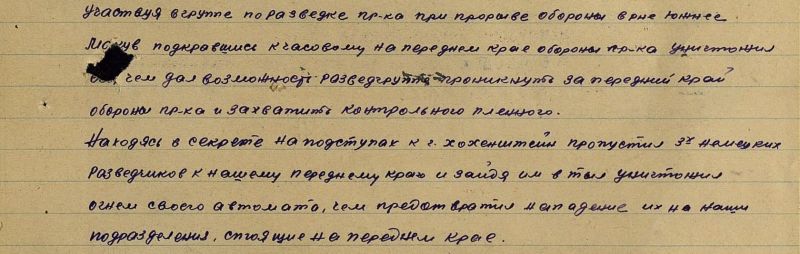 Участвуя в группе по разведке пр-ка при прорыве обороны в р-не южнее
подкравшись к часовому на переднем крае обороны пр-ка уничтожил
чем дал возможность разведгруппе проникнуть за передний край
обороны пр-ка и захватить контрольного пленного.
Находясь в секрете на подступах к г. Хохенштейн пропустил 3х немецких
разведчиков к нашему переднему краю и зайдя им в тыл уничтожил
огнем своего автомата, чем предотвратил нападение их на наши
подразделения, стоящие на переднем крае.